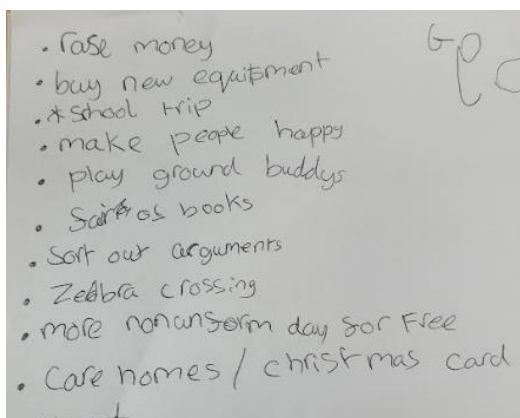 • rase money
• buy new equitment
• * school trip
• make people happy
• play ground buddys
• os books
• Sort out arguments
• Zeabra crossing
• more nonansorm day sor Free
• Care homes / christmas card